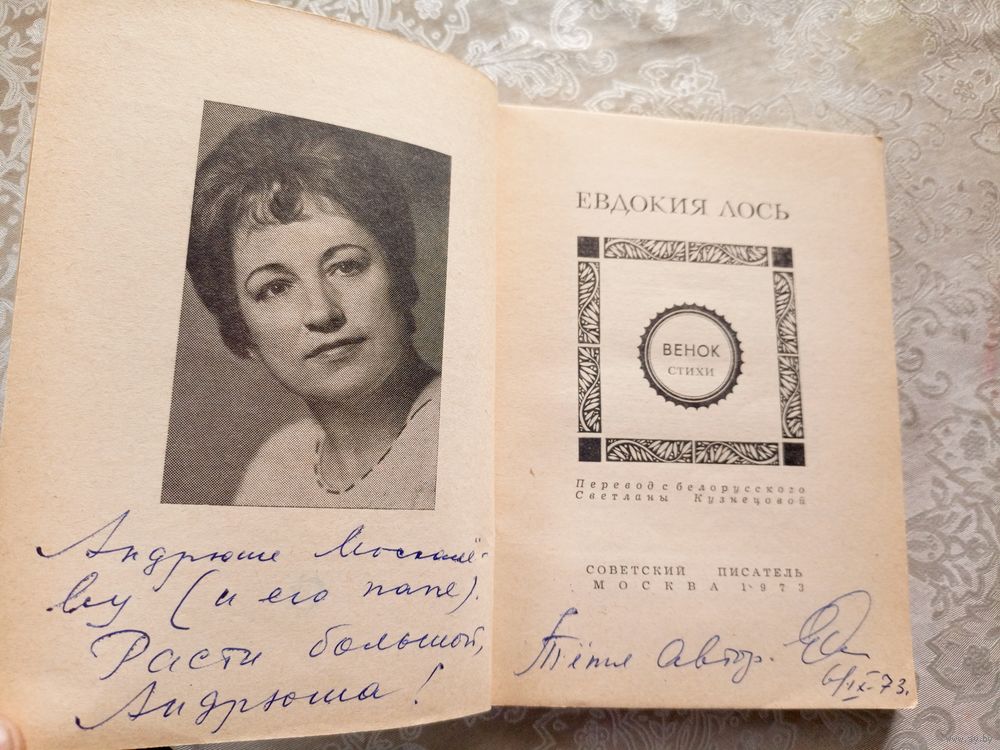 Андрюше Москалё-
ву (и его папе).
Расти большой,
Андрюша!
ЕВДОКИЯ ЛОСЬ
ВЕНОК
СТИХИ
Перевод с белорусского
Светланы Кузнецовой
СОВЕТСКИЙ ПИСАТЕЛЬ
МОСКВА 1973
Тётя Автор.
6/IX-73.
www.ay.by